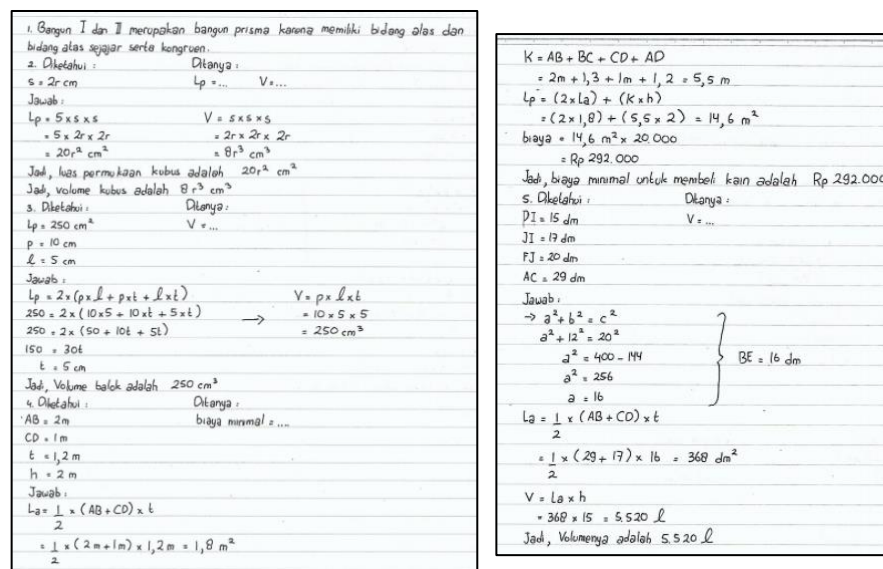 1. Bangun I dan II merupakan bangun prisma karena memiliki bidang alas dan
bidang atas sejajar serta kongruen.
2. Diketahui : Ditanya :
s = 2r cm Lp = ... V = ...
Jawab :
Lp = 5 x s x s V = s x s x s
= 5 x 2r x 2r = 2r x 2r x 2r
= 20r² cm² = 8r³ cm³
Jadi, luas permukaan kubus adalah 20r² cm²
Jadi, volume kubus adalah 8r³ cm³
3. Diketahui : Ditanya :
Lp = 250 cm² V = ...
p = 10 cm
l = 5 cm
Jawab :
Lp = 2 x (p x l + p x t + l x t) V = p x l x t
250 = 2 x (10 x 5 + 10 x t + 5 x t) → = 10 x 5 x 5
250 = 2 x (50 + 10t + 5t) = 250 cm³
150 = 30t
t = 5 cm
Jadi, Volume balok adalah 250 cm³
4. Diketahui : Ditanya :
AB = 2m biaya minimal = ....
CD = 1m
t = 1,2 m
h = 2 m
Jawab :
La = 1/2 x (AB + CD) x t
= 1/2 x (2m + 1m) x 1,2 m = 1,8 m²
K = AB + BC + CD + AD
= 2m + 1,3 + 1m + 1,2 = 5,5 m
Lp = (2 x La) + (K x h)
= (2 x 1,8) + (5,5 x 2) = 14,6 m²
biaya = 14,6 m² x 20.000
= Rp 292.000
Jadi, biaya minimal untuk membeli kain adalah Rp 292.000
5. Diketahui : Ditanya :
DI = 15 dm V = ...
JI = 17 dm
FJ = 20 dm
AC = 29 dm
Jawab :
→ a² + b² = c²
a² + 12² = 20²
a² = 400 - 144 BE = 16 dm
a² = 256
a = 16
La = 1/2 x (AB + CD) x t
= 1/2 x (29 + 17) x 16 = 368 dm²
V = La x h
= 368 x 15 = 5.520 l
Jadi, Volumenya adalah 5.520 l